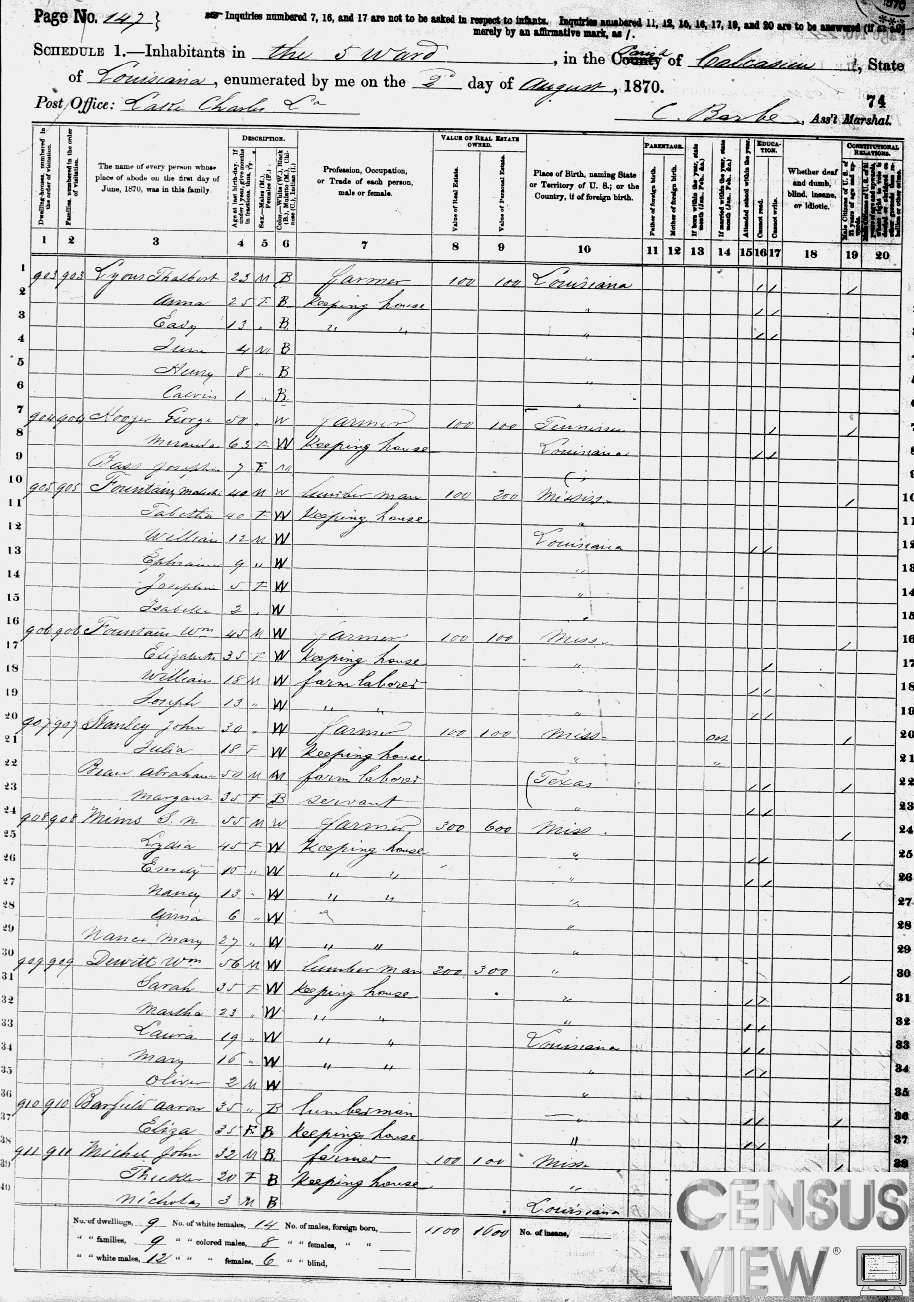 Page No. 147 }
Inquiries numbered 7, 16, and 17 are not to be asked in respect to infants. Inquiries numbered 11, 12, 15, 16, 17, 19, and 20 are to be answered (if at all)
merely by an affirmative mark, as /.
SCHEDULE 1.—Inhabitants in the 5 Ward, in the County Parish of Calcasieu, State
of Louisiana, enumerated by me on the 2d day of August, 1870.
Post Office: Lake Charles La
74
C. Barbe, Ass't Marshal.
Dwelling-houses, numbered in the order of visitation.
Families, numbered in the order of visitation.
The name of every person whose place of abode on the first day of June, 1870, was in this family.
DESCRIPTION.
Profession, Occupation, or Trade of each person, male or female.
VALUE OF REAL ESTATE OWNED.
Value of Real Estate.
Value of Personal Estate.
Place of Birth, naming State or Territory of U. S.; or the Country, if of foreign birth.
PARENTAGE.
Father of foreign birth.
Mother of foreign birth.
EDUCATION.
Attended school within the year.
Cannot read.
Cannot write.
Whether deaf and dumb, blind, insane, or idiotic.
CONSTITUTIONAL RELATIONS.
1 2 3 4 5 6 7 8 9 10 11 12 13 14 15 16 17 18 19 20
1 903 903 Lyons Thalbert 23 M B farmer 100 100 Louisiana / / / 1
2 Anna 25 F B keeping house " / / 2
3 Eady 13 " B " " " / / 3
4 June 4 M B " 4
5 Henry 8 " B " 5
6 Calvin 1 " B " 6
7 904 904 George 50 " W farmer 100 100 Tennessee / / 7
8 Miranda 63 F W keeping house Louisiana / / 8
9 Bass Josephine 7 F W 9
10 905 905 Fountain, 40 M W lumber man 100 200 Mississ. / 10
11 Tabetha 40 F W keeping house " 11
12 William 12 M W Louisiana / / 12
13 Ephraim 9 " W " 13
14 Josephine 5 F W " 14
15 Isabella 2 " W " 15
16 906 906 Fountain Wm 45 M W farmer 100 100 Miss. / 16
17 Elizabeth 35 F W keeping house " / 17
18 William 18 M W farm laborer " / / 18
19 Joseph 13 " W " " " / / 19
20 907 907 Stanley John 30 " W farmer 100 100 Miss. / 20
21 Julia 18 F W keeping house " " 21
22 Abraham 50 M M farm laborer Texas / / / 22
23 Margaret 35 F B servant " / / 23
24 908 908 Mims S. N 55 M W farmer 300 600 Miss. / 24
25 Lydia 45 F W keeping house " / / 25
26 Emily 15 " W " " " / / 26
27 Nancy 13 " W " " " 27
28 Anna 6 " W " 28
29 Nance Mary 27 " W " " " 29
30 909 909 Dewitt Wm 56 M W lumber man 200 300 " / 30
31 Sarah 35 F W keeping house " / / 31
32 Martha 23 " W " " " / / 32
33 Laura 19 " W " " Louisiana / / 33
34 Mary 16 " W " " " / / 34
35 Oliver 2 M W " 35
36 910 910 Barfield Aaron 35 " B lumberman — / / / 36
37 Eliza 35 F B keeping house " / / 37
38 911 911 Michel John 32 M B farmer 100 100 Miss / 38
39 20 F B keeping house " 39
40 Nicholas 3 M B Louisiana
No. of dwellings, 9 No. of white females, 14 No. of males, foreign born, 1100 1600 No. of insane,
" " families, 9 " " colored males, 8 " " females, " "
" " white males, 12 " " " females, 6 " " blind,
CENSUS
VIEW ®